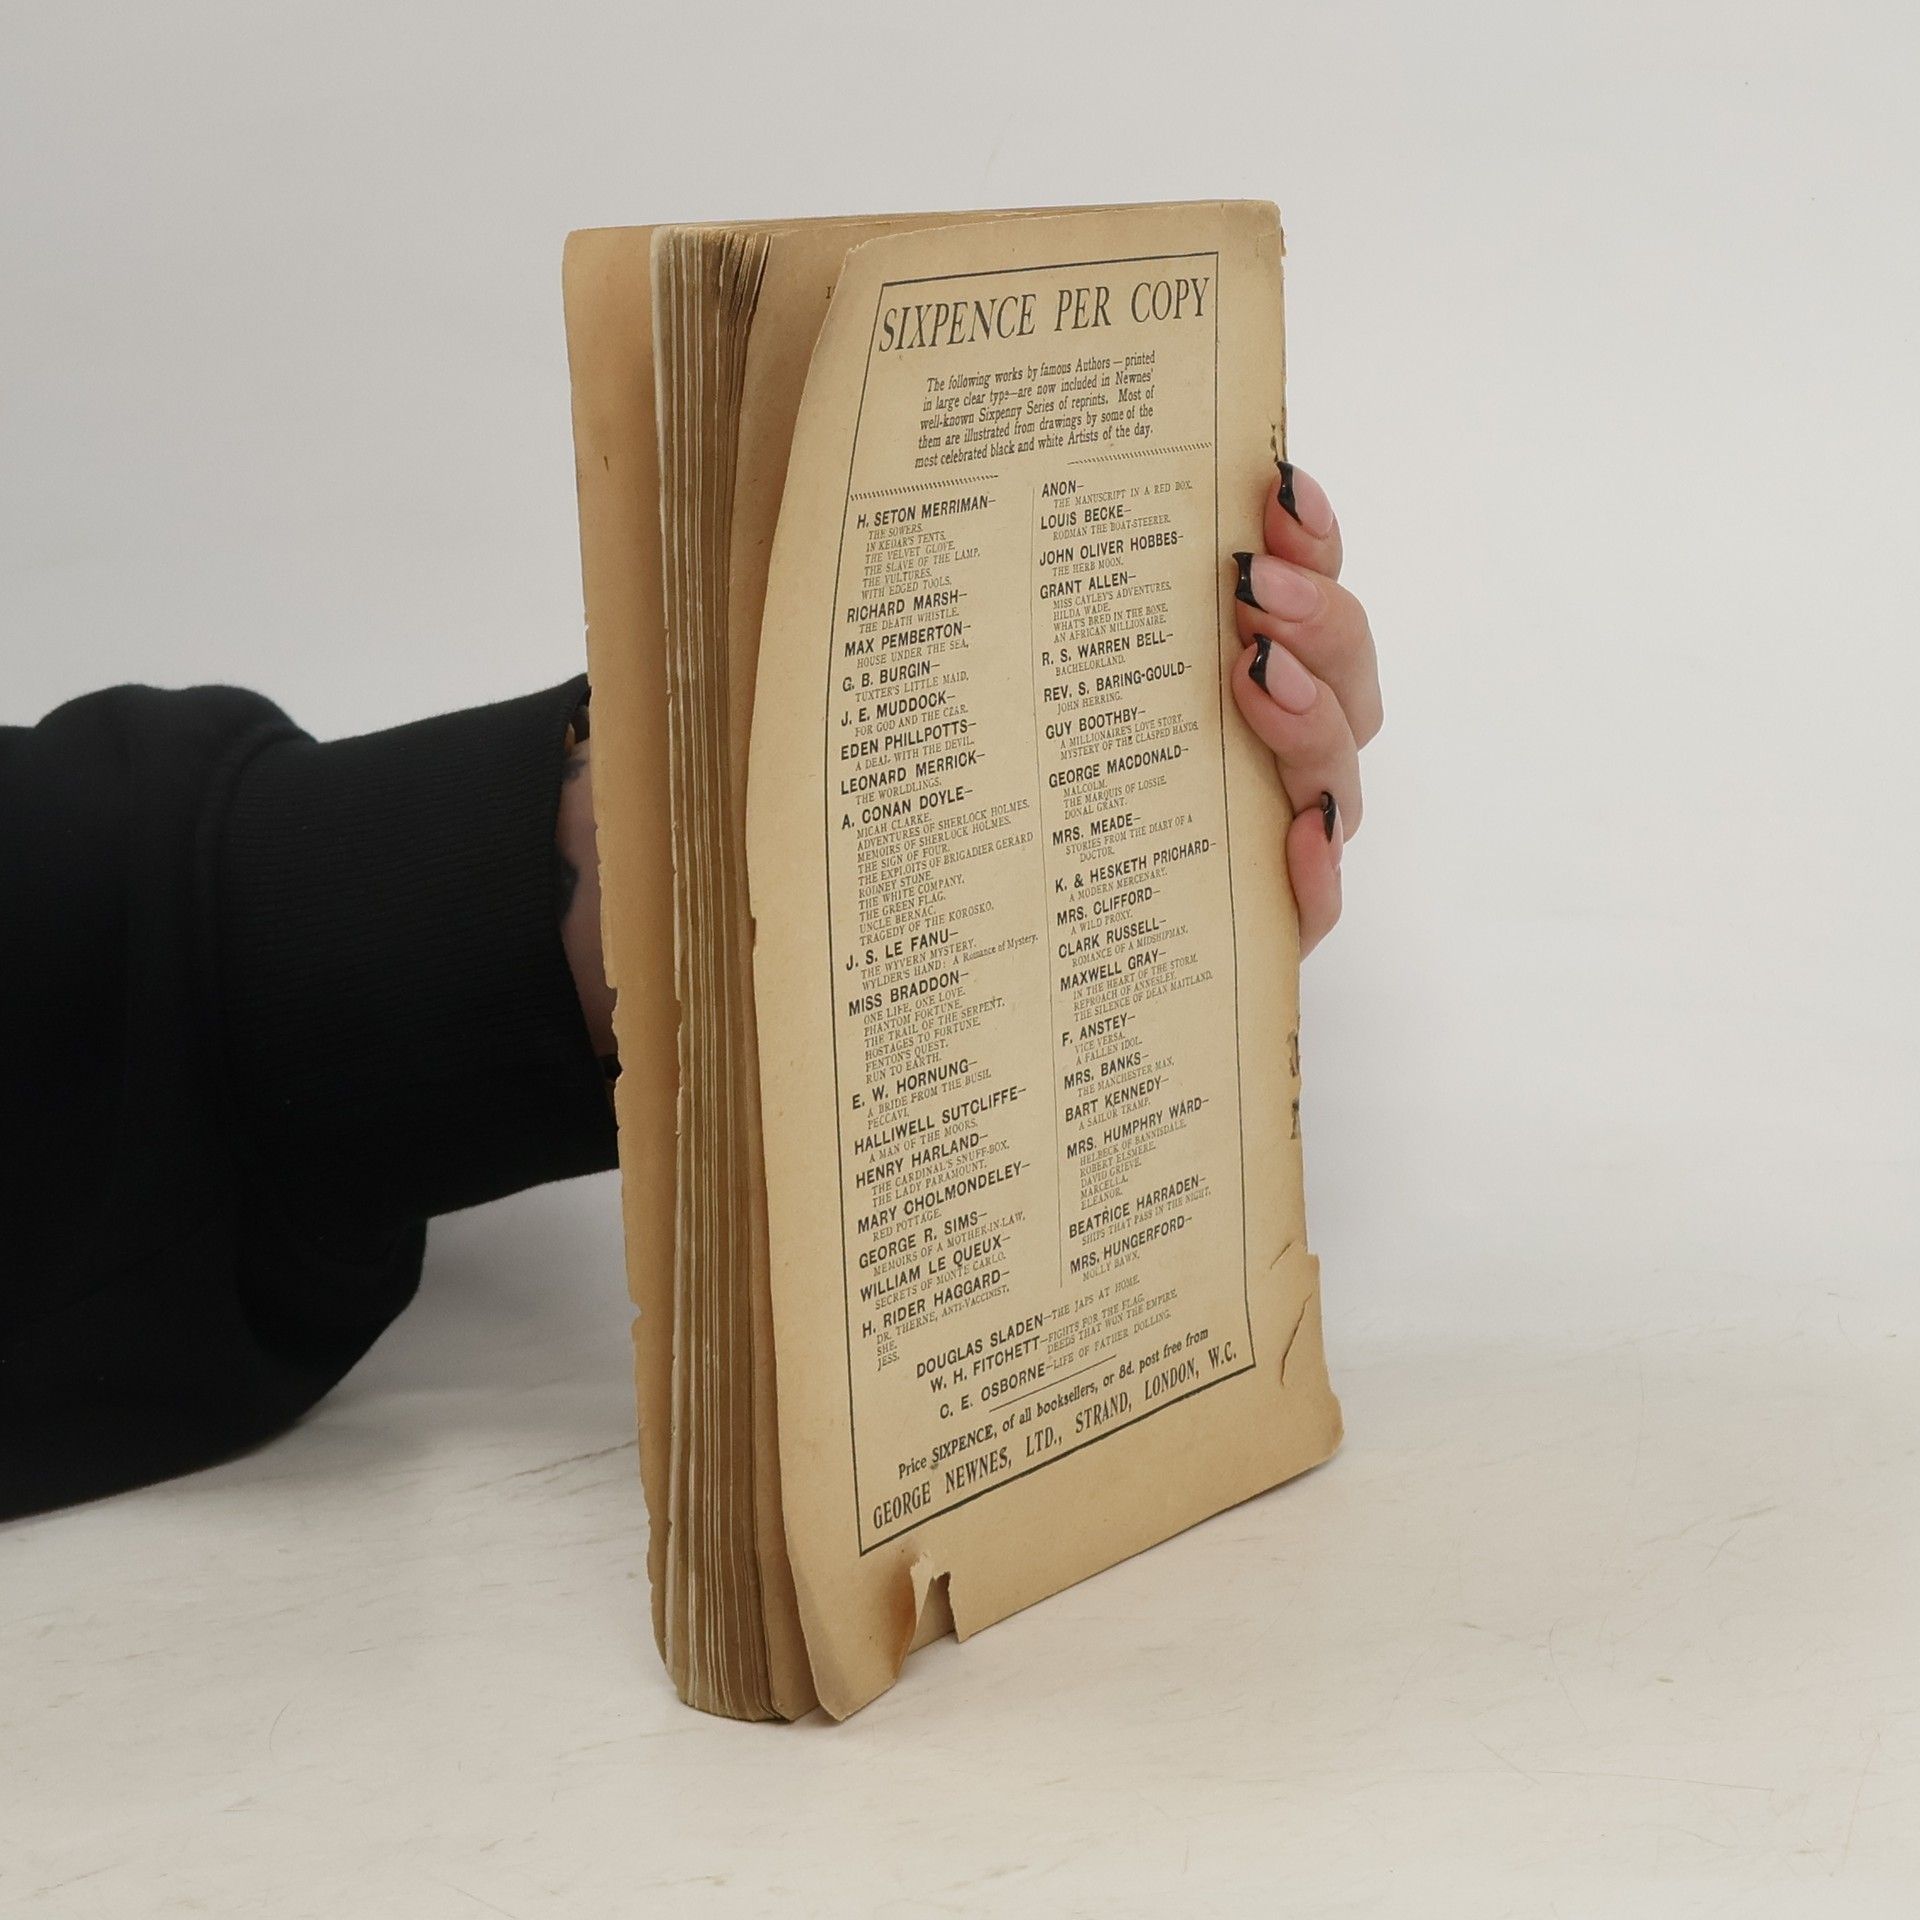 SIXPENCE PER COPY
The following works by famous Authors — printed
in large clear type—are now included in Newnes'
well-known Sixpenny Series of reprints. Most of
them are illustrated from drawings by some of the
most celebrated black and white Artists of the day.
H. SETON MERRIMAN—
THE SOWERS.
IN KEDAR'S TENTS.
THE VELVET GLOVE.
THE SLAVE OF THE LAMP.
THE VULTURES.
WITH EDGED TOOLS.
RICHARD MARSH—
THE DEATH WHISTLE.
MAX PEMBERTON—
HOUSE UNDER THE SEA.
G. B. BURGIN—
TUXTER'S LITTLE MAID.
J. E. MUDDOCK—
FOR GOD AND THE CZAR.
EDEN PHILLPOTTS—
A DEAL WITH THE DEVIL.
LEONARD MERRICK—
THE WORLDLINGS.
A. CONAN DOYLE—
MICAH CLARKE.
ADVENTURES OF SHERLOCK HOLMES.
MEMOIRS OF SHERLOCK HOLMES.
THE SIGN OF FOUR.
THE EXPLOITS OF BRIGADIER GERARD
RODNEY STONE.
THE WHITE COMPANY.
THE GREEN FLAG.
UNCLE BERNAC.
TRAGEDY OF THE KOROSKO.
J. S. LE FANU—
THE WYVERN MYSTERY.
WYLDER'S HAND: A Romance of Mystery.
MISS BRADDON—
ONE LIFE, ONE LOVE.
PHANTOM FORTUNE.
THE TRAIL OF THE SERPENT.
HOSTAGES TO FORTUNE.
FENTON'S QUEST.
RUN TO EARTH.
E. W. HORNUNG—
A BRIDE FROM THE BUSH.
PECCAVI.
HALLIWELL SUTCLIFFE—
A MAN OF THE MOORS.
HENRY HARLAND—
THE CARDINAL'S SNUFF-BOX.
THE LADY PARAMOUNT.
MARY CHOLMONDELEY—
RED POTTAGE.
GEORGE R. SIMS—
MEMOIRS OF A MOTHER-IN-LAW.
WILLIAM LE QUEUX—
SECRETS OF MONTE CARLO.
H. RIDER HAGGARD—
DR. THERNE, ANTI-VACCINIST.
SHE.
JESS.
ANON—
THE MANUSCRIPT IN A RED BOX.
LOUIS BECKE—
RODMAN THE BOAT-STEERER.
JOHN OLIVER HOBBES—
THE HERB MOON.
GRANT ALLEN—
MISS CAYLEY'S ADVENTURES.
HILDA WADE.
WHAT'S BRED IN THE BONE.
AN AFRICAN MILLIONAIRE.
R. S. WARREN BELL—
BACHELORLAND.
REV. S. BARING-GOULD—
JOHN HERRING.
GUY BOOTHBY—
A MILLIONAIRE'S LOVE STORY.
MYSTERY OF THE CLASPED HANDS.
GEORGE MACDONALD—
MALCOLM.
THE MARQUIS OF LOSSIE.
DONAL GRANT.
MRS. MEADE—
STORIES FROM THE DIARY OF A
DOCTOR.
K. & HESKETH PRICHARD—
A MODERN MERCENARY.
MRS. CLIFFORD—
A WILD PROXY.
CLARK RUSSELL—
ROMANCE OF A MIDSHIPMAN.
MAXWELL GRAY—
IN THE HEART OF THE STORM.
REPROACH OF ANNESLEY.
THE SILENCE OF DEAN MAITLAND.
F. ANSTEY—
VICE VERSA.
A FALLEN IDOL.
MRS. BANKS—
THE MANCHESTER MAN.
BART KENNEDY—
A SAILOR TRAMP.
MRS. HUMPHRY WARD—
HELBECK OF BANNISDALE.
ROBERT ELSMERE.
DAVID GRIEVE.
MARCELLA.
ELEANOR.
BEATRICE HARRADEN—
SHIPS THAT PASS IN THE NIGHT.
MRS. HUNGERFORD—
MOLLY BAWN.
DOUGLAS SLADEN—THE JAPS AT HOME.
W. H. FITCHETT—FIGHTS FOR THE FLAG.
DEEDS THAT WON THE EMPIRE.
C. E. OSBORNE—LIFE OF FATHER DOLLING.
Price SIXPENCE, of all booksellers, or 8d. post free from
GEORGE NEWNES, LTD., STRAND, LONDON, W.C.